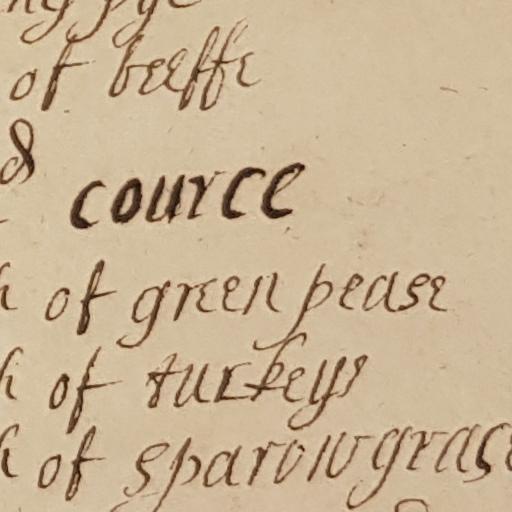 of beeffe
cource
of green pease
of turkeys
of sparowgrass